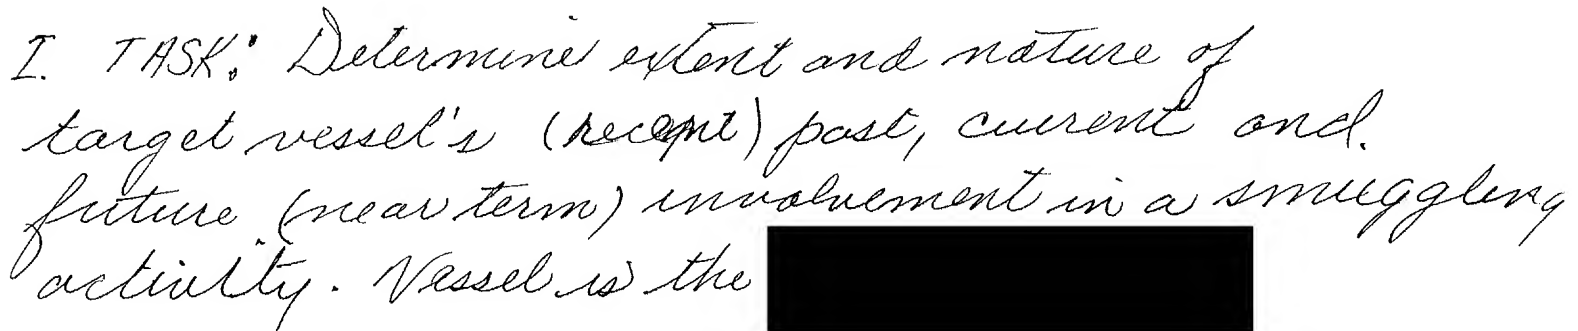 I. TASK: Determine extent and nature of
target vessel's (recent) past, current and
future (near term) involvement in a smuggling
activity. Vessel is the